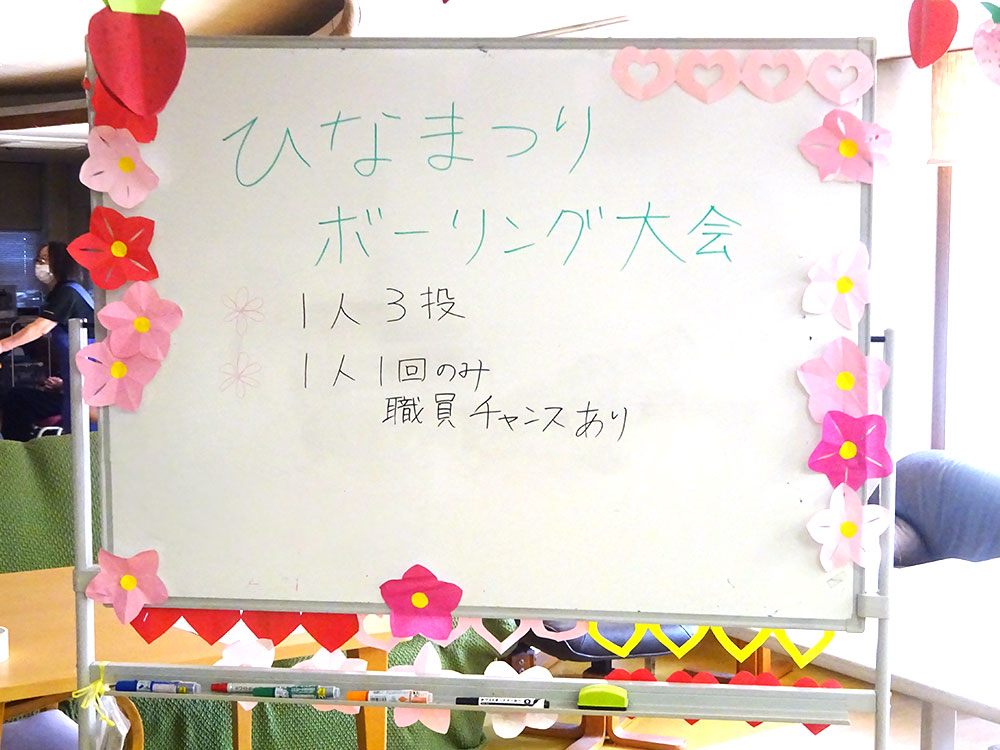 ひなまつり
ボーリング大会
1人 3投
1人 1回のみ
職員チャンスあり